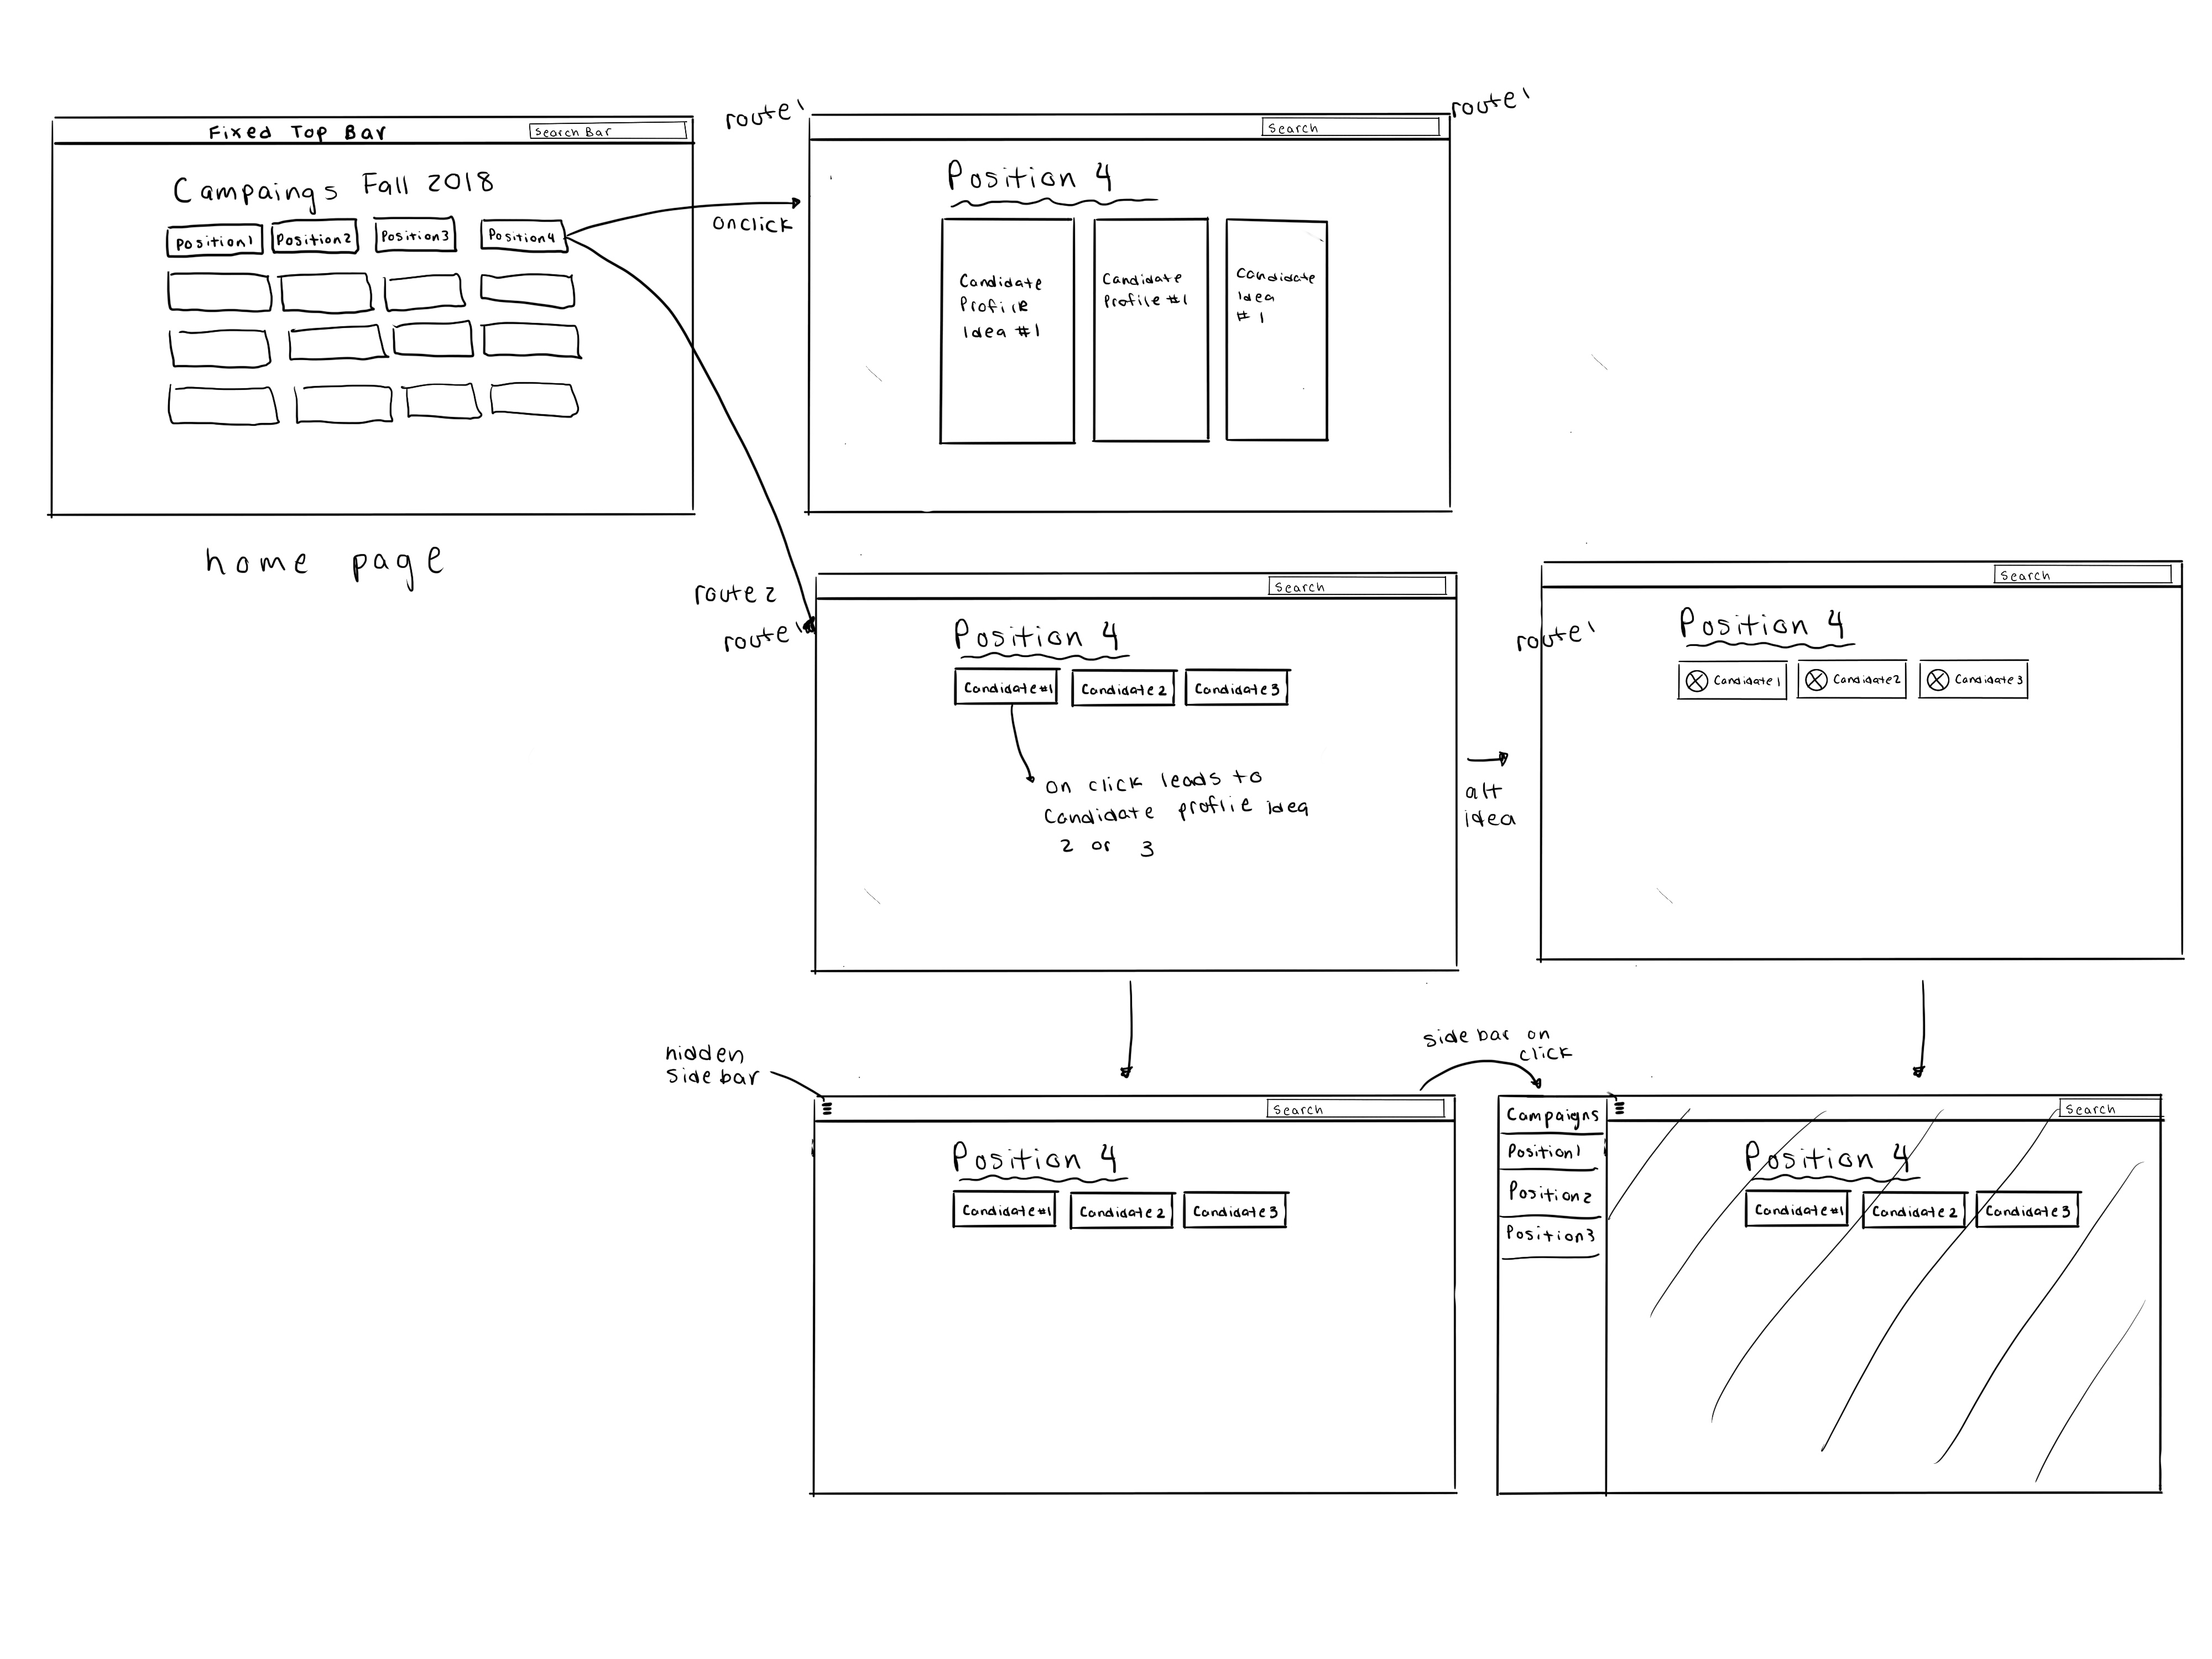 Fixed Top Bar
Search Bar
Campaings Fall 2018
Position1
Position2
Position3
Position4
home page
onclick
route1
route1
Search
Position 4
Candidate
Profile
Idea #1
Candidate
Profile #1
Candidate
Idea
# 1
route 2
route1
Search
Position 4
Candidate #1
Candidate 2
Candidate 3
On click leads to
Candidate proflie idea
2 or 3
alt
idea
route1
Search
Position 4
Candidate 1
Candidate 2
Candidate 3
hidden
Side bar
Search
Position 4
Candidate #1
Candidate 2
Candidate 3
Side bar on
click
Campaigns
Position1
Position2
Position3
Search
Position 4
Candidate #1
Candidate 2
Candidate 3